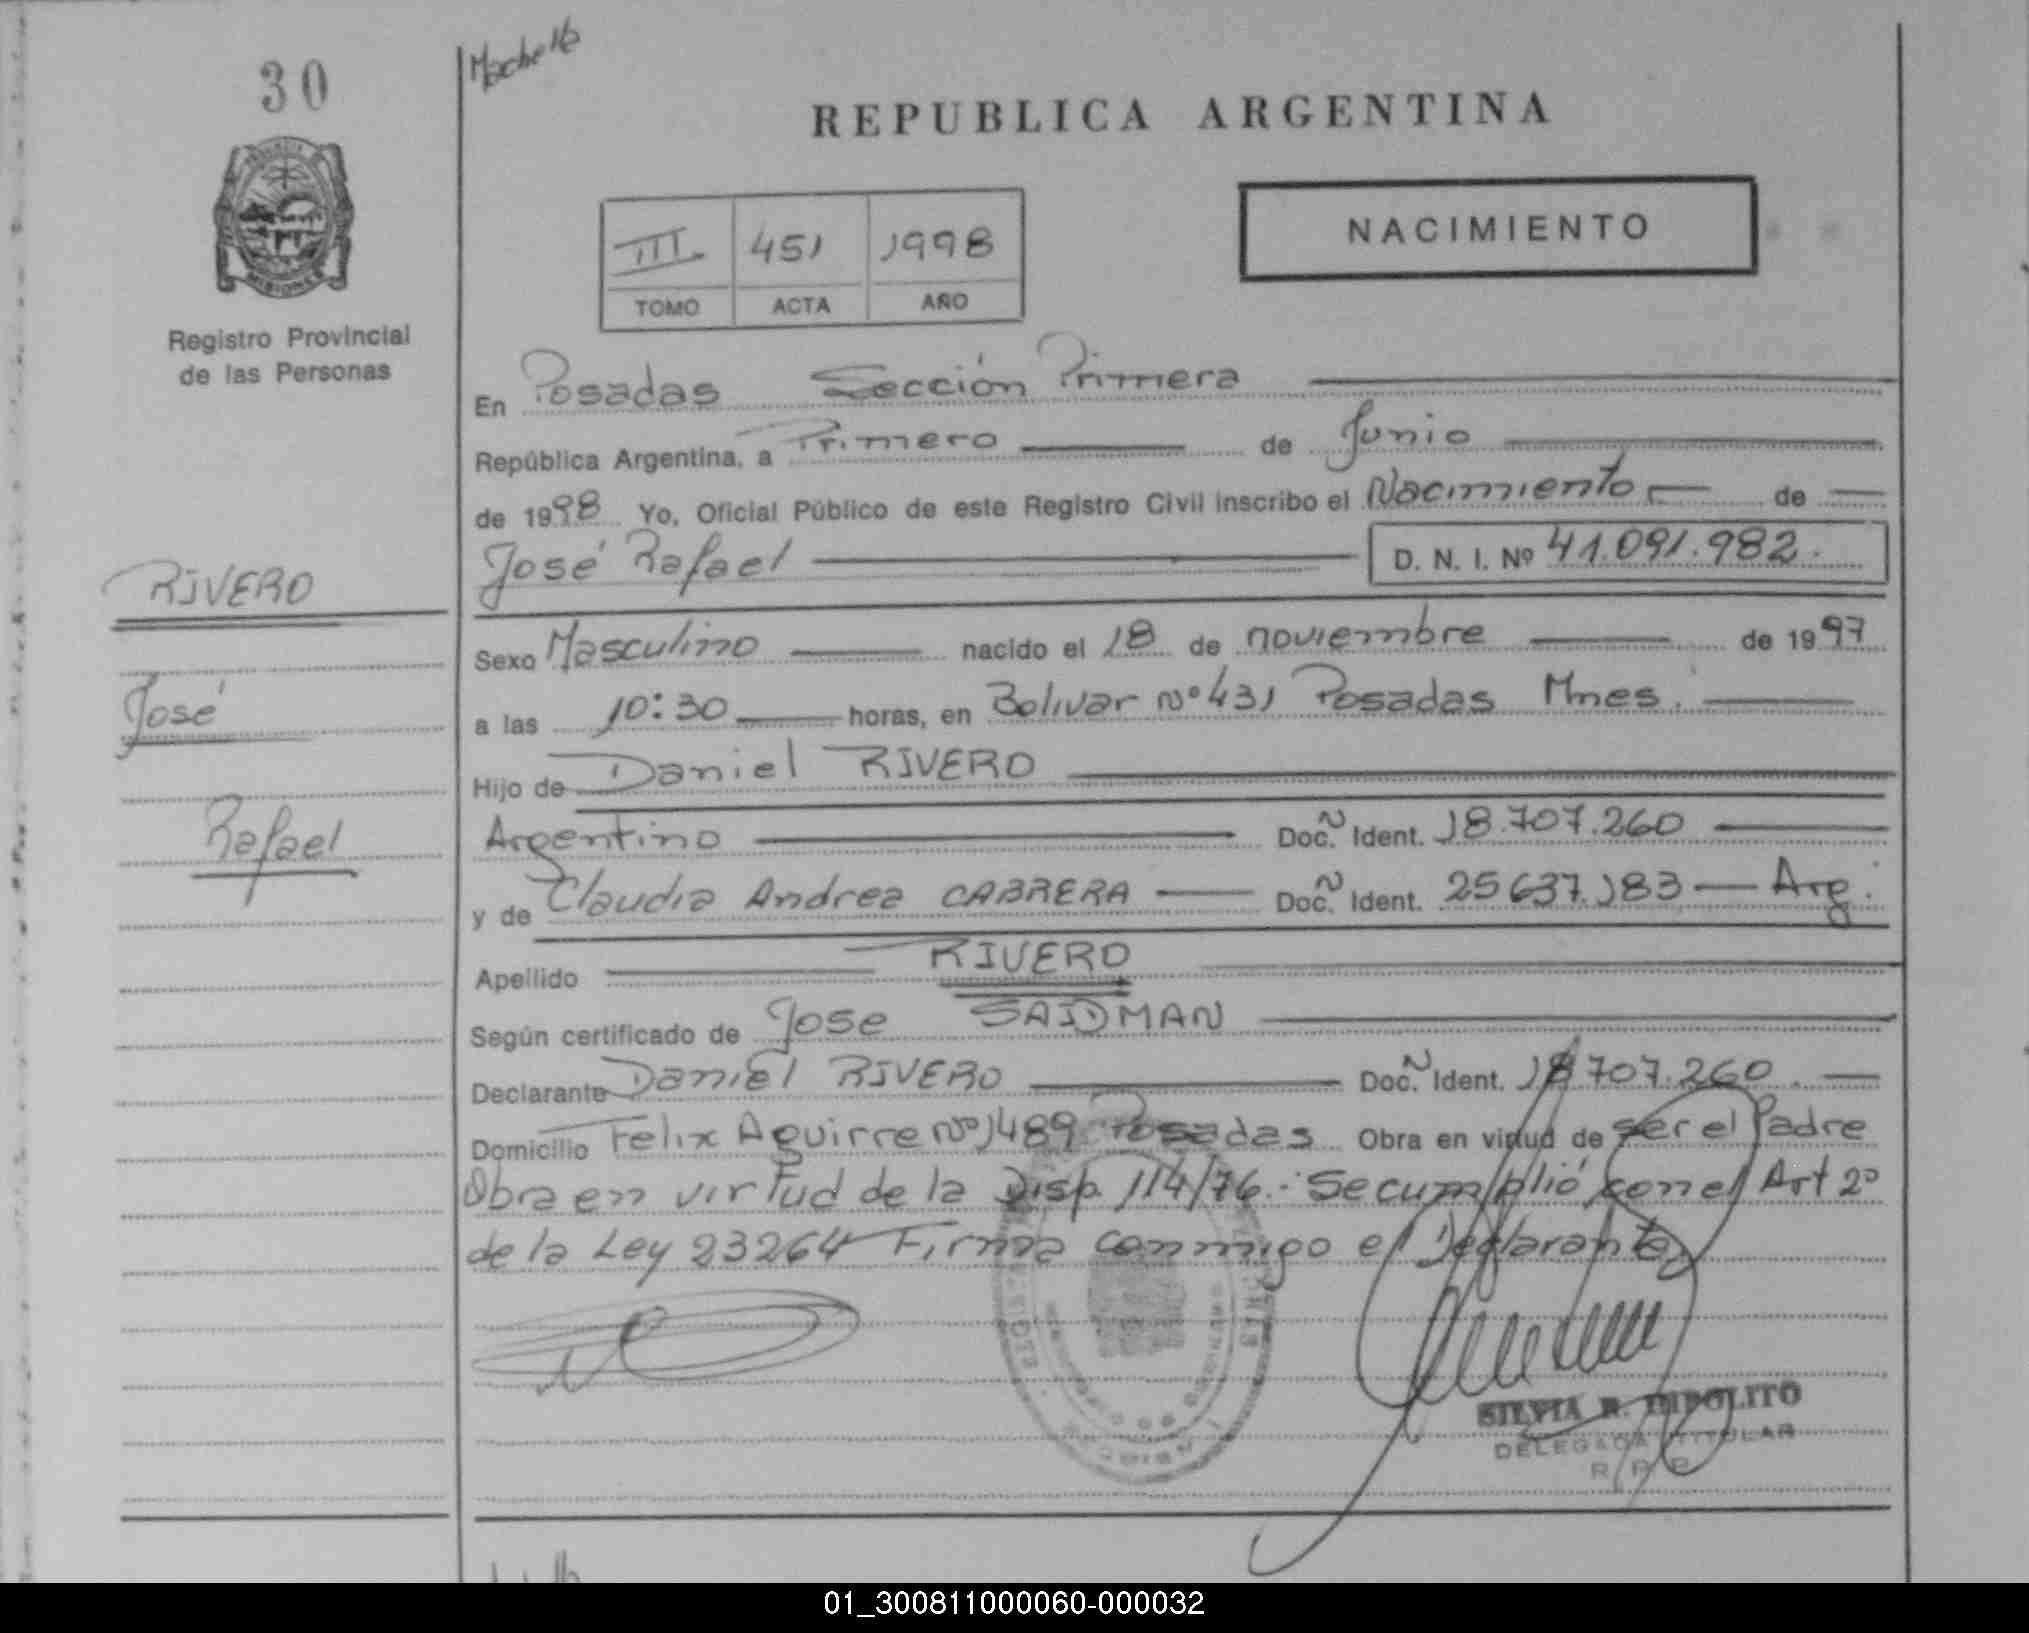 30
Registro Provincial
de las Personas
RIVERO
José
Rafael
REPUBLICA ARGENTINA
III 451 1998
TOMO ACTA AÑO
NACIMIENTO
En Posadas Sección Primera
República Argentina, a Primero de Junio
de 1998 Yo, Oficial Público de este Registro Civil inscribo el Nacimiento de
José Rafael D. N. I. Nº 41.091.982.
Sexo Masculino nacido el 18 de noviembre de 1997
a las 10:30 horas, en Bolivar nº 431 Posadas Mnes.
Hijo de Daniel RIVERO
Argentino Doc. N Ident. 18.707.260
y de Claudia Andrea CABRERA Doc. N Ident. 25637.183 Arg.
Apellido RIVERO
Según certificado de Jose SAIDMAN
Declarante Daniel RIVERO Doc. N Ident. 18707.260
Domicilio Felix Aguirre Nº 1489 Posadas Obra en virtud de ser el Padre
Obra en virtud de la Disp. 114/76.- Se cumplió con el Art 2º
de la Ley 23264 Firma conmigo el Declarante
SILVIA R. HIPOLITO
DELEGADA TITULAR
R.P.P.
01_300811000060-000032